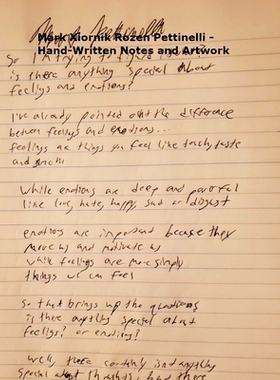 Mark Xiornik Rozen Pettinelli –
Hand-Written Notes and Artwork
So I'm trying to figure
is there anything special about
feelings and emotions?
I've already pointed out the difference
between feelings and emotions...
feelings are things you feel like touch, taste
and
While emotions are deep and powerful
like love, hate, happy, sad or disgust
emotions are important because they
move us and motivate us
while feelings are more simply
things we can feel
So that brings up the questions
is there anything special about
feelings? or emotions?
Well, there certainly isn't anything
special about thoughts, but there